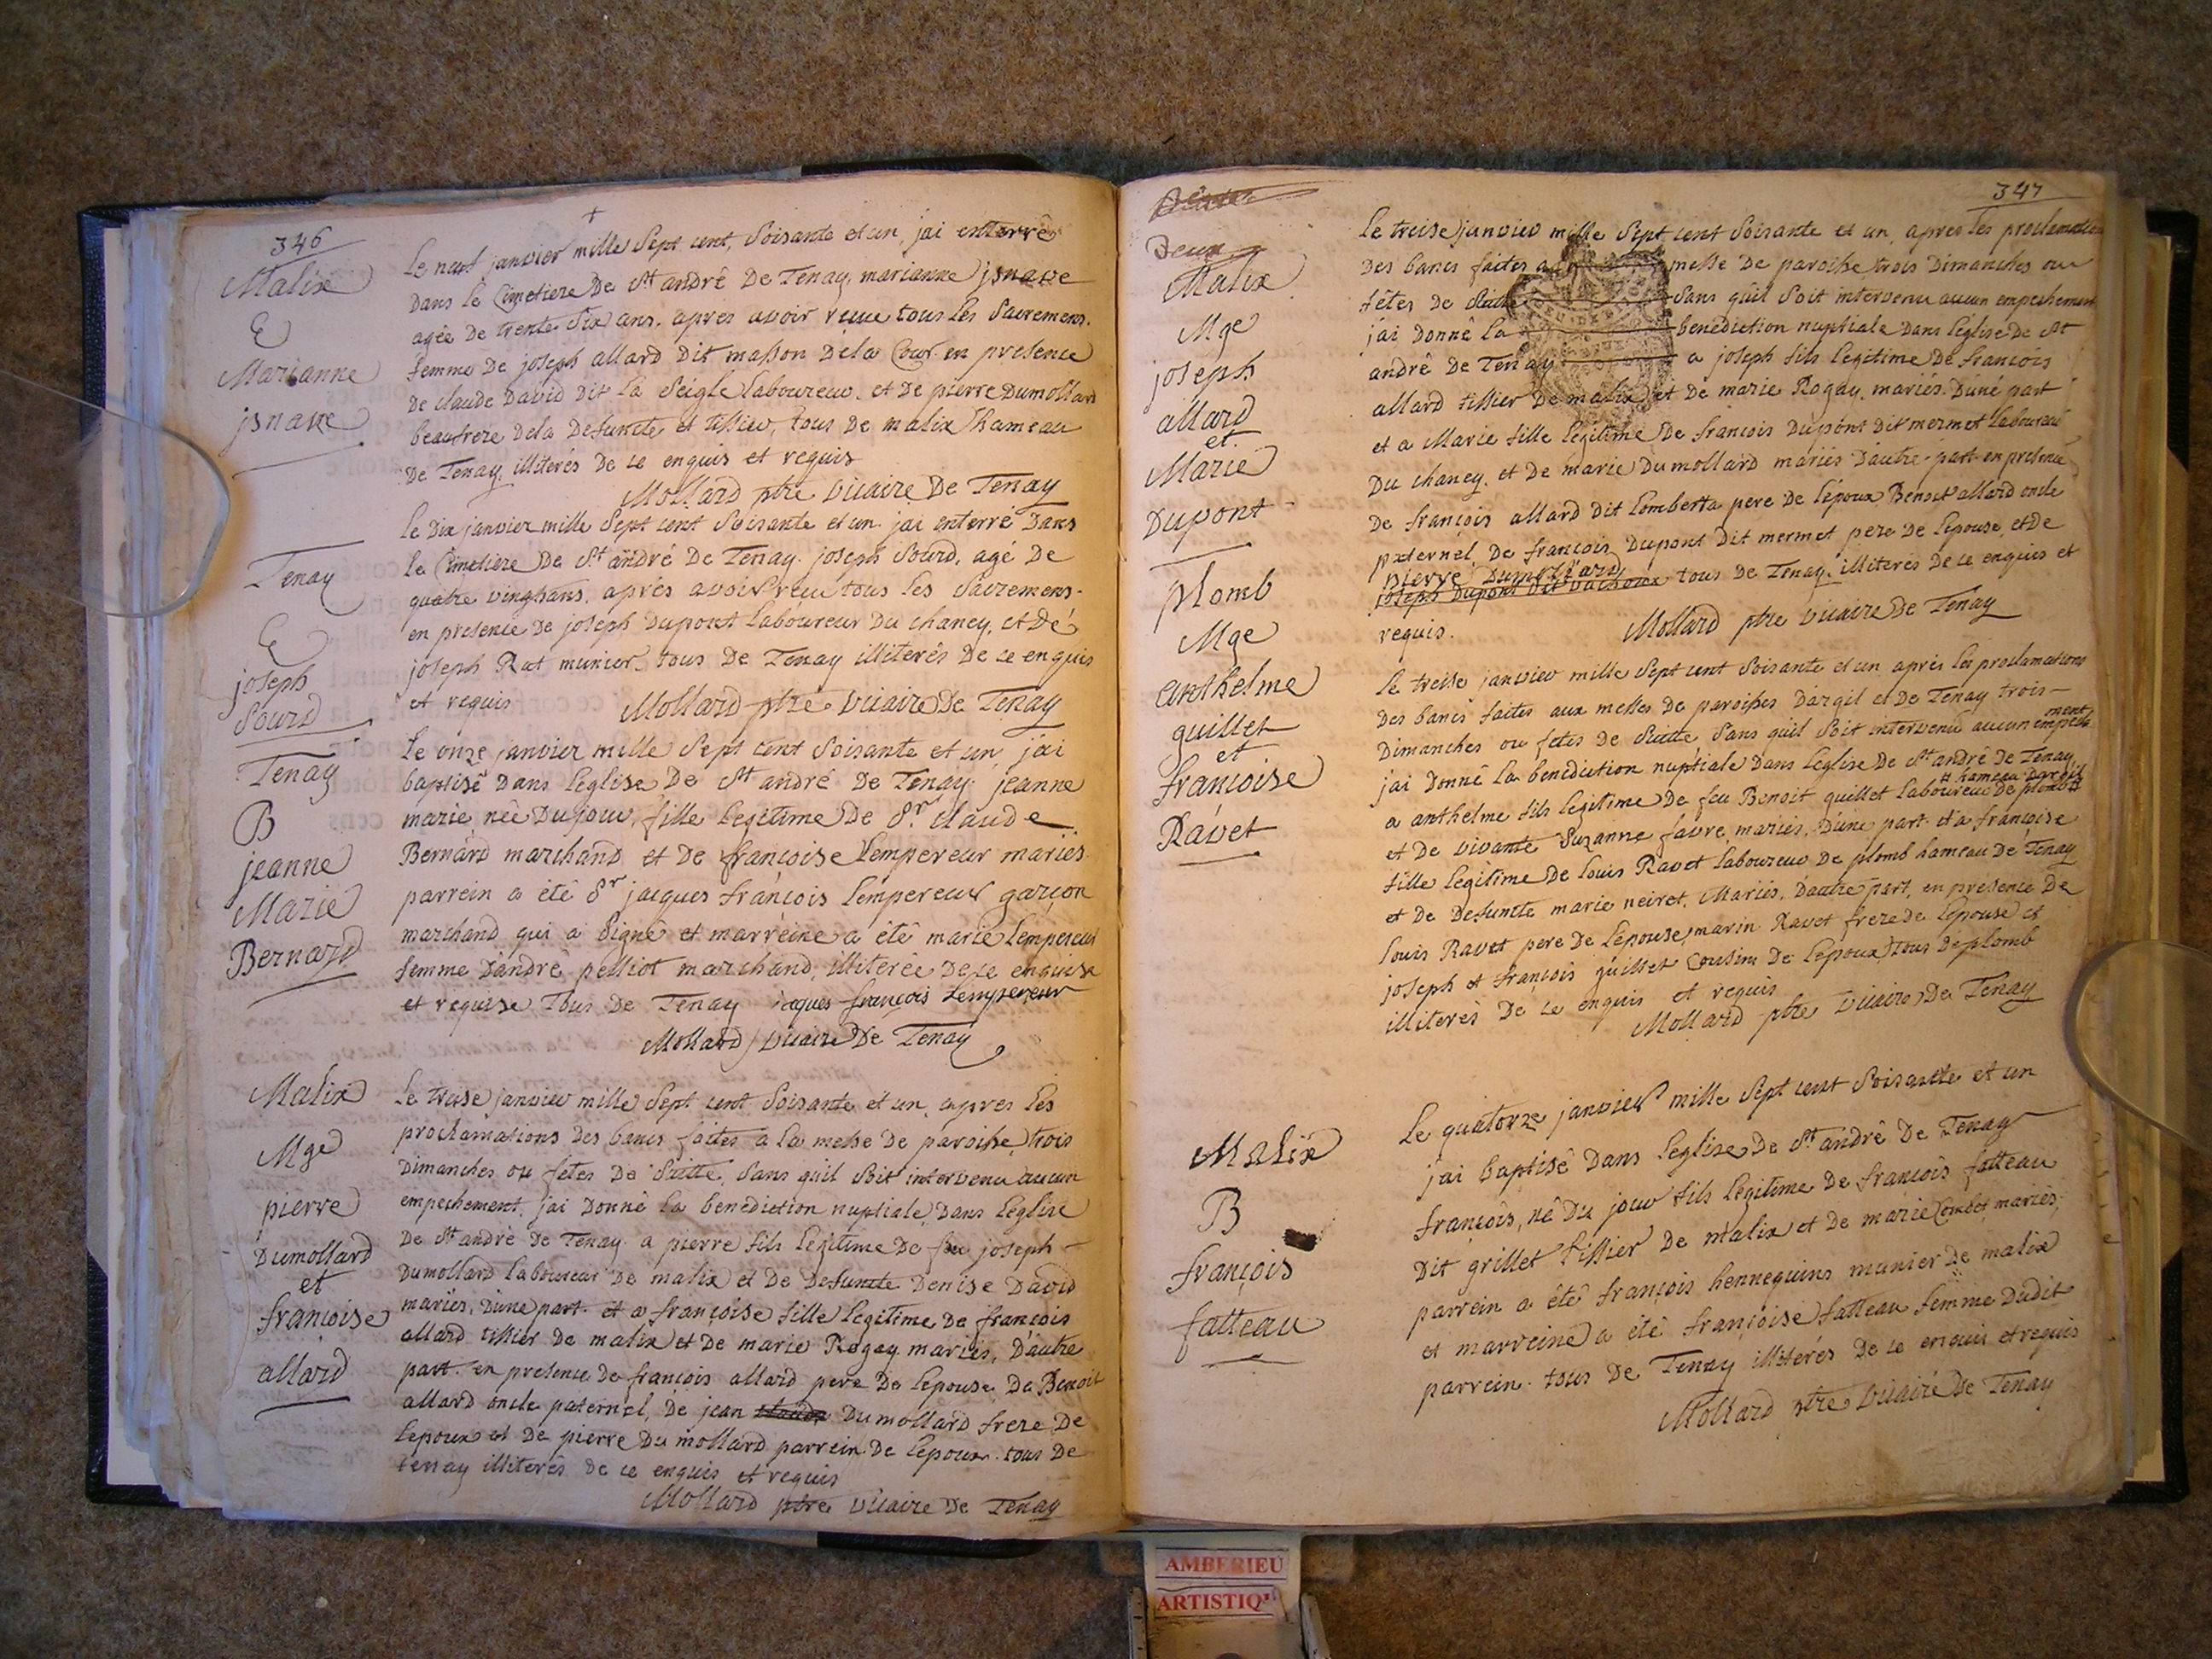 346
Malix
E
Marianne
jsnave
Le neuf janvier mille Sept cent, Soisante et un, jai enterré
dans le Cimetiere De St andré De Tenay, marianne jsnave
agée de trente Six ans. apres avoir reçue tous les Sacremens.
femme De joseph allard Dit masson Dela Cour. en presence
De claude David Dit la Seigle laboureur. et De pierre Dumollard
beaufrere Dela Defuncte et tissier, tous De malix hameau
De Tenay. illiterés De ce enquis et requis
Mollard ptre vicaire De Tenay
Tenay
E
joseph
Sourd
le Dix janvier mille Sept cent Soisante et un. jai enterré Dans
le Cimetiere De St andré De Tenay. joseph Sourd, agé De
quatre vingts ans, aprés avoir reçu tous les Sacremens.
en presence De joseph Dupont laboureur Du chaney, et De
joseph Rat munier. tous De Tenay illiterés De ce enquis
et requis
Mollard ptre vicaire De Tenay
Tenay
B
jeanne
Marie
Bernard
Le onze janvier mille Sept cent Soisante et un, jai
baptisé Dans leglise De St andré De Tenay jeanne
marie née Du jour, fille legitime De Sr claude
Bernard marchand et De françoise lempereur mariés
parrein a été Sr jacques françois lempereur garçon
marchand qui a Signé et marreine a été marie lempereur
femme Dandré pelliot marchand, illiterée De ce enquise
et requise Tous De Tenay jacques françois Lempereur
Mollard vicaire De Tenay
Malix
Mge
pierre
Dumollard
et
françoise
allard
Le treise janvier mille Sept cent Soisante et un, apres les
proclamations Des bancs faites a la messe De paroisse, trois
Dimanches ou fêtes De Suitte, Sans quil Soit intervenu aucun
empechement, jai Donné la benediction nuptiale, Dans leglise
De St andré de Tenay a pierre fils legitime De feu joseph
Dumollard laboureur De malix et De Defuncte Denise David
mariés, Dune part. et a françoise fille legitime De françois
allard tissier De malix et De marie Rogay mariés, D'autre
part. en presence De françois allard pere De lepouse, De Benoit
allard oncle paternel, De jean Dumollard frere De
lepoux et De pierre Dumollard parrein De lepoux. tous De
tenay illiterés De ce enquis et requis
Mollard ptre vicaire De Tenay
347
Deux
Malix
Mge
joseph
allard
et
Marie
Dupont
Le treise janvier mille Sept cent Soisante et un, apres les proclamations
Des bancs faites a messe De paroisse trois Dimanches ou
fêtes De Suitte Sans quil Soit intervenu aucun empechement
jai Donné la benediction nuptiale Dans leglise De St
andré De Tenay a joseph fils legitime De francois
allard tissier De malix et De marie Rogay, mariés. Dune part
et a Marie fille legitime De françois Dupont Dit mermet laboureur
Du chaney. et De marie Dumollard mariés Dautre-part en presence
De françois allard Dit lomberta pere De lépoux, Benoit allard oncle
paternel De francois Dupont Dit mermet pere De lepouse, et De
pierre Dumollard
joseph Dupont Dit tous De Tenay. illiterés De ce enquis et
requis.
Mollard ptre vicaire De Tenay
plomb
Mge
anthelme
guillet
et
françoise
Ravet
Le treise janvier mille Sept cent Soisante et un aprés les proclamations
Des bancs faites aux messes De paroisses D'argil et De Tenay trois
Dimanches ou fetes De Suitte Sans quil Soit intervenu aucun empeche
ment
jai Donné la benediction nuptiale Dans leglise De St andré De Tenay
# hameau Dargil
a anthelme fils legitime De feu Benoit guillet laboureur De plomb #
et De vivante Suzanne favre mariés. Dune part et a françoise
fille legitime De louis Ravet laboureur De plomb hameau De Tenay
et De Defuncte marie neiret. Mariés, Dautre part, en presence De
louis Ravet pere De lepouse, marin Ravet frere De lepouse et
joseph et françois guillet Cousins De lepoux, tous De plomb
illiterés De ce enquis et requis
Mollard ptre vicaire De Tenay
Malix
B
françois
fatteau
Le quatorze janvier mille Sept cent Soisante et un
jai baptisé Dans leglise De St andré De Tenay
françois, né Du jour fils legitime De françois fatteau
Dit grillet tissier De malix et De marie Combet mariés.
parrein a été françois hennequins munier De malix
et marreine a été françoise fatteau femme Dudit
parrein. tous De Tenay illiterés De ce enquis et requis
Mollard ptre vicaire De Tenay
AMBERIEU
ARTISTIQ